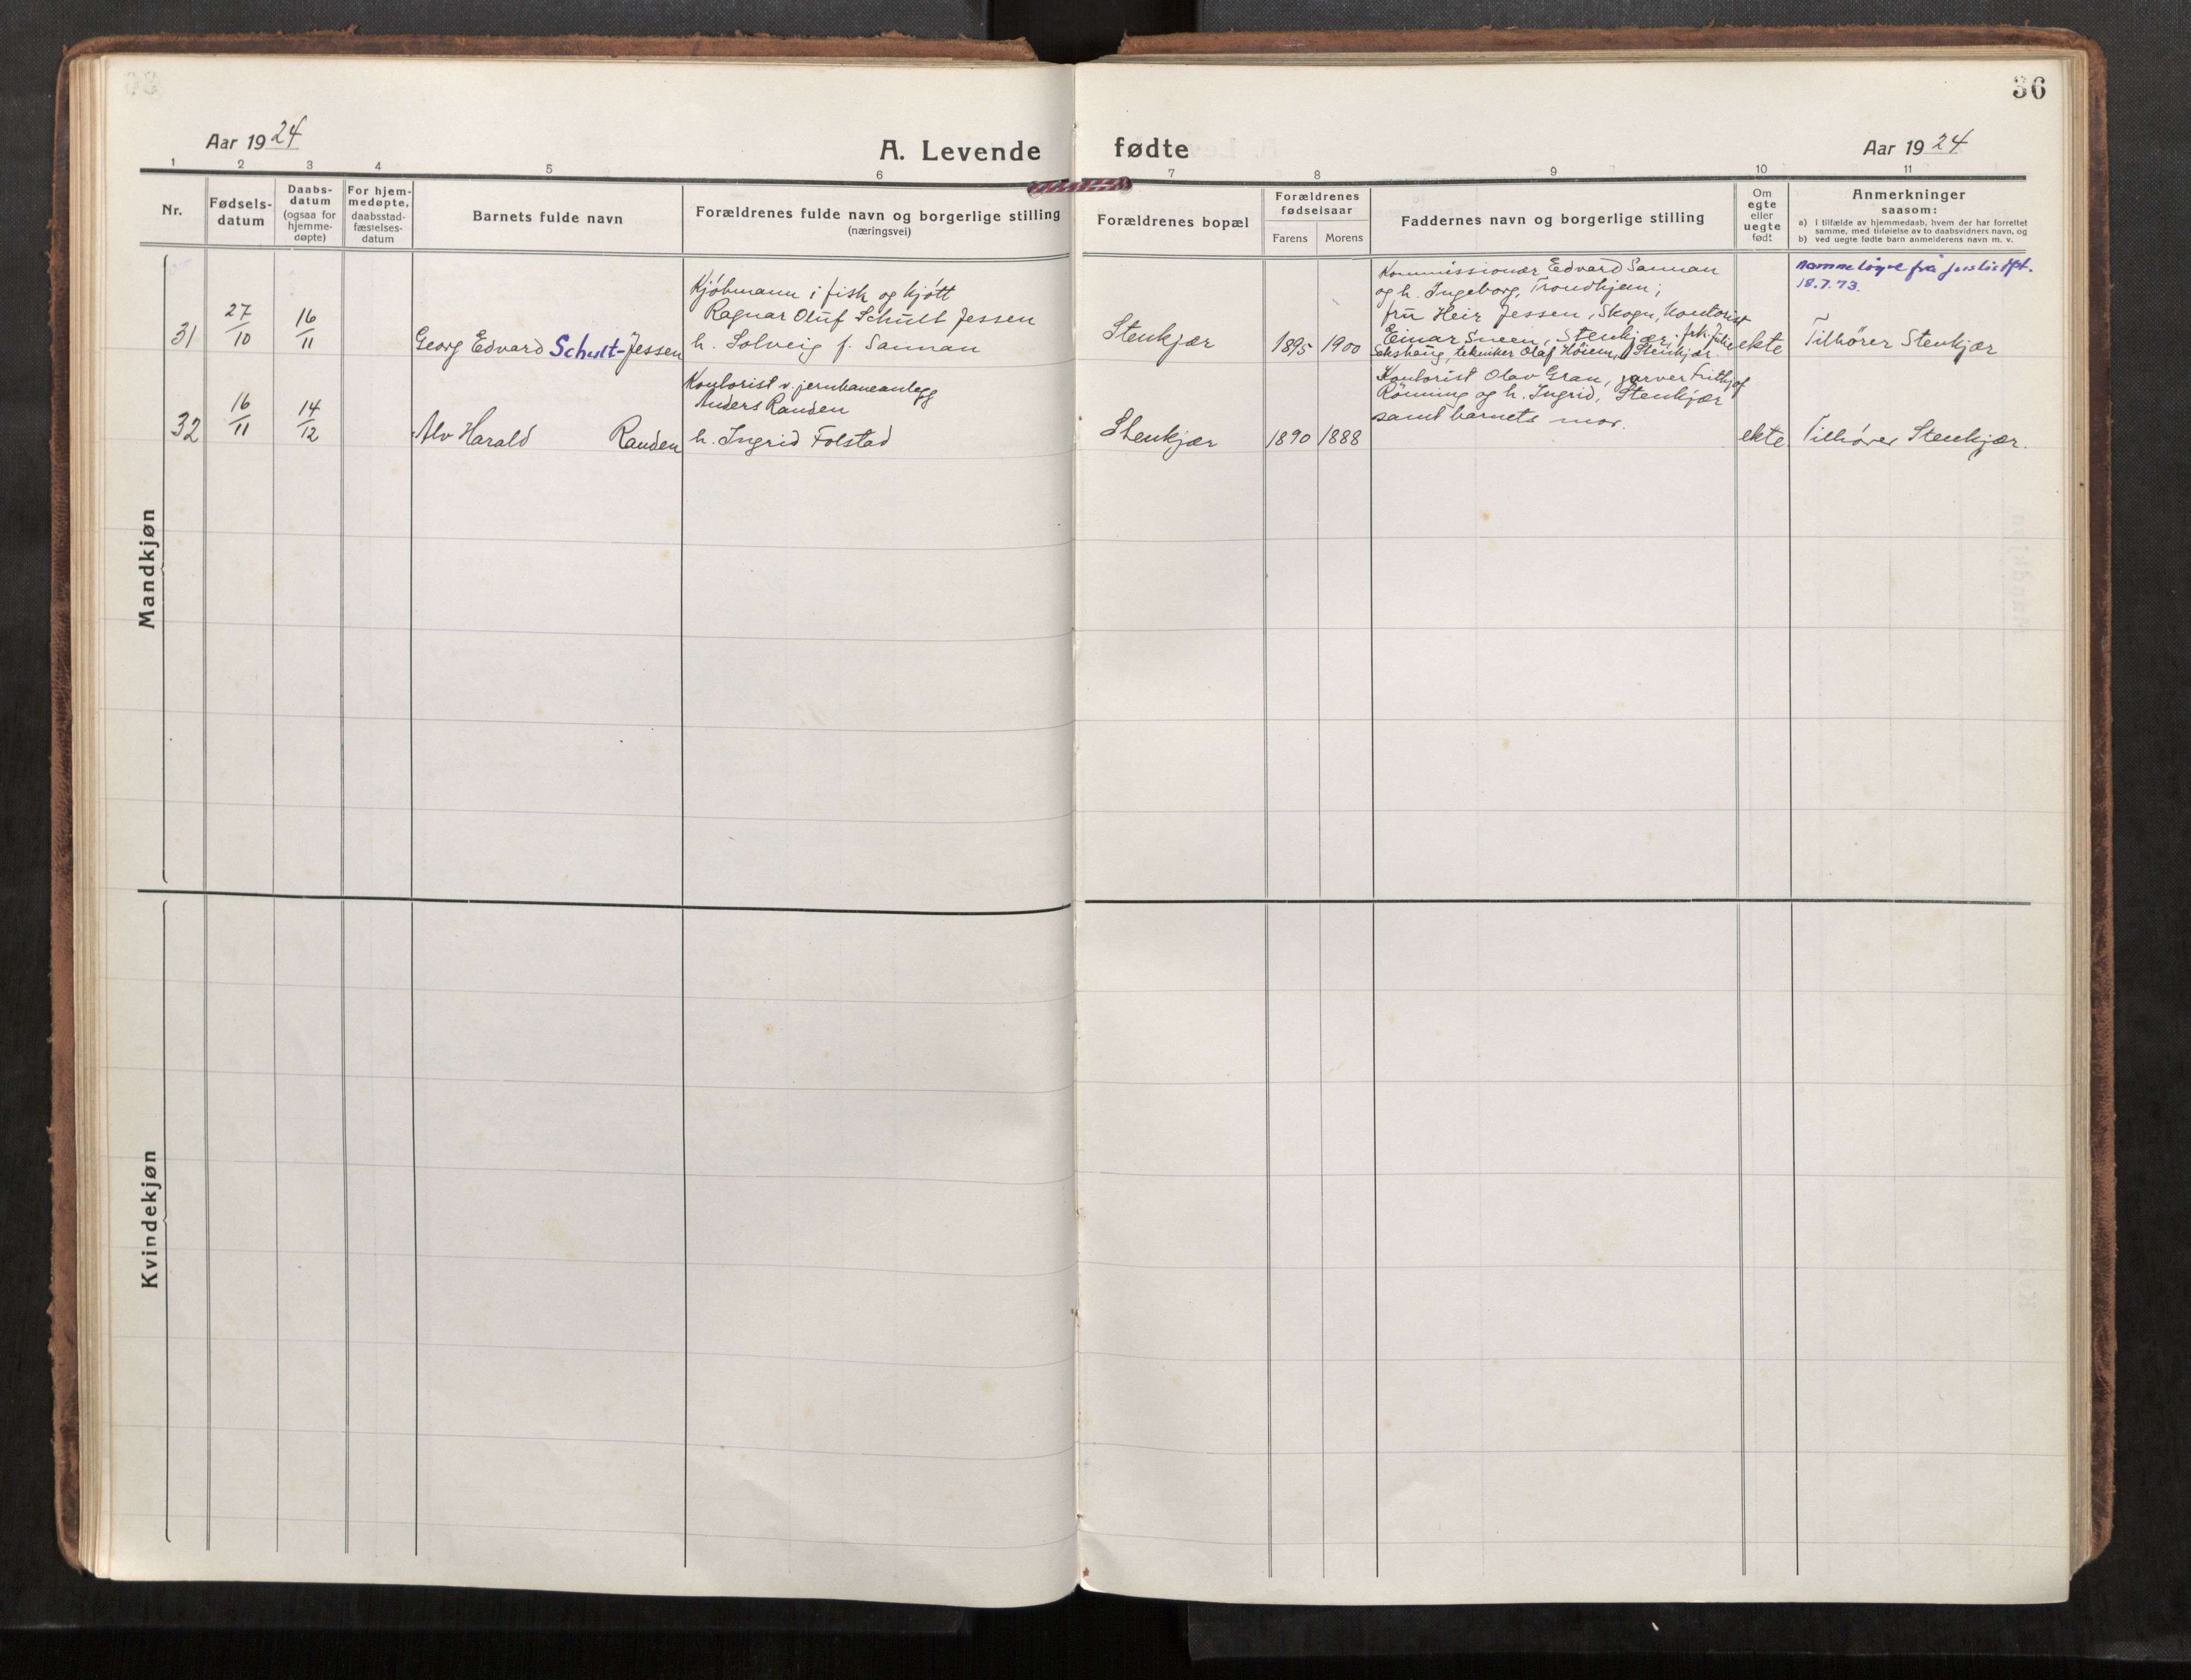 36
Aar 1924
A. Levende fødte
Aar 1924
1 2 3 4 5 6 7 8 9 10 11
Nr.
Fødsels-
datum
Daabs-
datum
(ogsaa for
hjemme-
døpte)
For hjem-
medøpte,
daabsstad-
fæstelses-
datum
Barnets fulde navn
Forældrenes fulde navn og borgerlige stilling
(næringsvei)
Forældrenes bopæl
Forældrenes
fødselsaar
Farens
Morens
Faddernes navn og borgerlige stilling
Om
egte
eller
uegte
født
Anmerkninger
saasom:
a) i tilfælde av hjemmedaab, hvem der har forrettet
samme, med tilføielse av to daabsvidners navn, og
b) ved uegte fødte barn anmelderens navn m. v.
Mandkjøn
31
27/10
16/11
Georg Edvard Schult-Jessen
Kjøbmann i fisk og kjøtt
Ragnar Oluf Schult Jessen
h. Solveig f. Sannan
Stenkjær
1895
1900
Kommissionær Edvard Sannan
og h. Ingeborg, Trondhjem;
fru Heir Jessen, Skogn, Kontorist
Einar Sneen, Stenkjær, frk. Julie
tekniker Olaf Høiem, Stenkjær.
ekte
fra justisdpt.
18.7.73.
Tilhører Stenkjær
32
16/11
14/12
Alv Harald Randen
Kontorist v. jernbaneanlegg
Anders Randen
h. Ingrid Folstad
Stenkjær
1890
1888
Kontorist Olav Gran, Frithjof
Rönning og h. Ingrid, Stenkjær
samt barnets mor.
ekte.
Tilhører Stenkjær.
Kvindekjøn